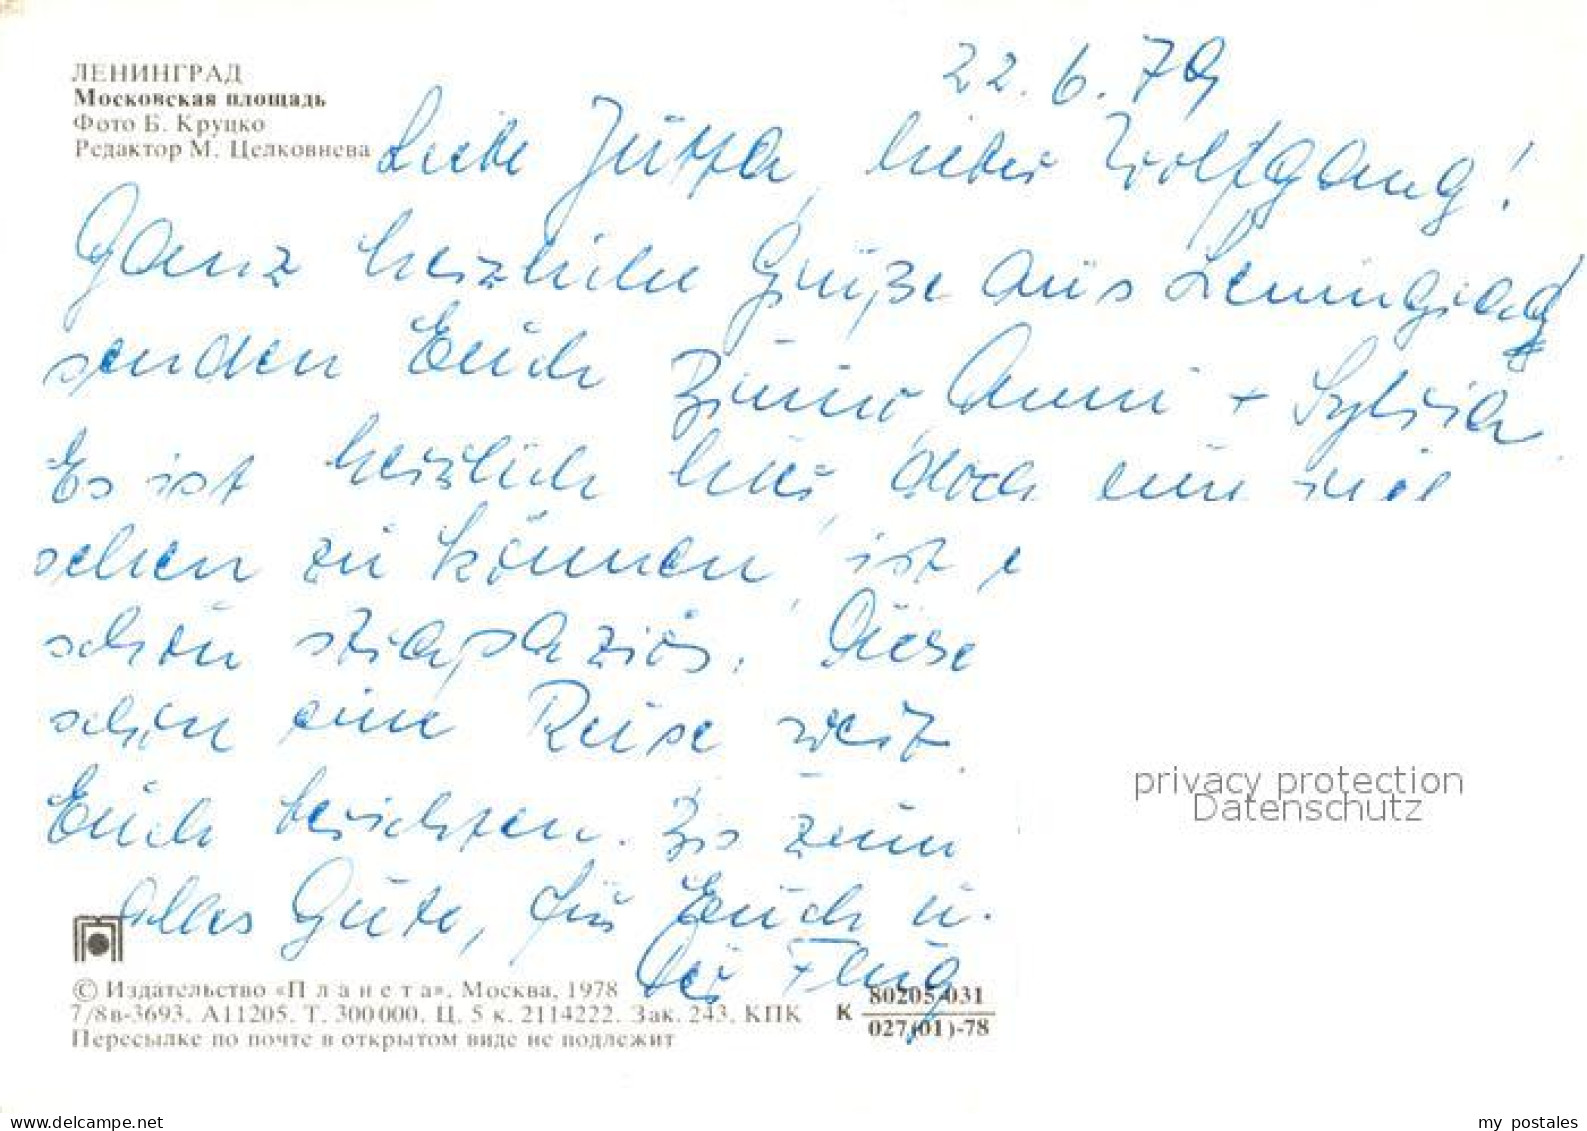 22.6.79
ЛЕНИНГРАД
Московская площадь
Фото Б. Круцко
Редактор М. Целковнева
Liebe Jutta, lieber Wolfgang!
Ganz herzliche Grüße aus Leningrad
senden Euch Anni + Sylvia
Es ist herrlich hier, doch um viel
sehen zu können, ist
schon strapaziös. Diese
schon eine Reise wert.
Euch berichten. Bis zum
alles Gute, für Euch u.
Der Flug
privacy protection
Datenschutz
© Издательство «Планета». Москва, 1978
7/8в-3693. А11205. Т. 300000. Ц. 5 к. 2114222. Зак. 243. КПК
К 80205-031
027(01)-78
Пересылке по почте в открытом виде не подлежит
own by: herbi
my postales